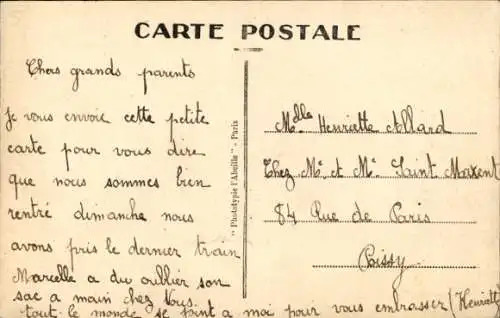 CARTE POSTALE
Chers grands parents
je vous envoie cette petite
carte pour vous dire
que nous sommes bien
rentré dimanche nous
avons pris le dernier train
Marcelle a du oublier son
sac a main chez Vous.
tout le monde se joint a moi pour vous embrasser (Henriette
"Phototypie l'Abeille" - Paris
Mdlle Henriette Allard
Chez Mr et Me Saint Maxent
84 Rue de Paris
Poissy